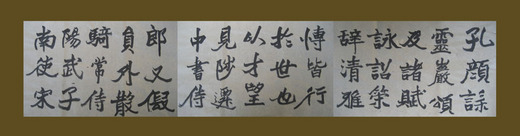 孔顏誄
靈巖頌
及諸賦
詠詔策
辭清雅
愽皆行
於世也
以才望
見陟遷
中書侍
郎又假
員外散
騎常侍
陽武子
南使宋